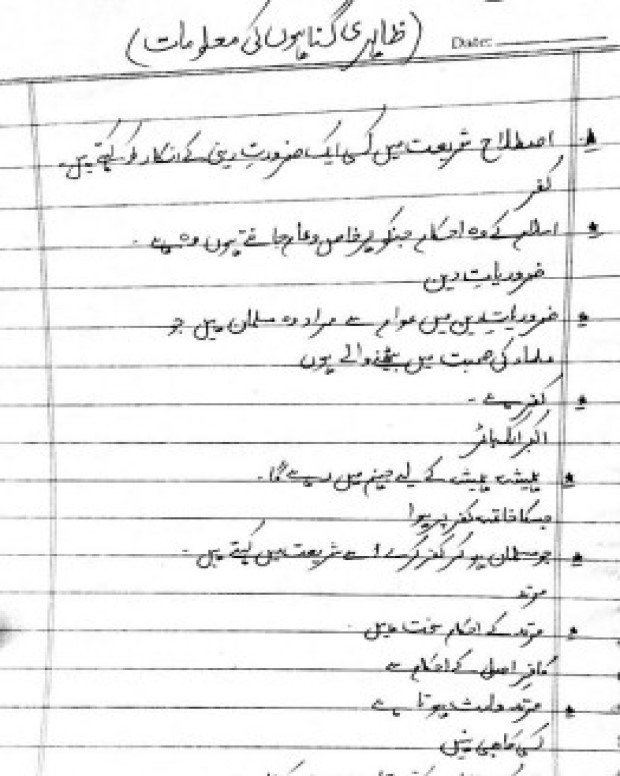 (ظاہری گناہوں کی معلومات)
Date:
* اصطلاح شریعت میں کسی ایک ضرورت دینی کے انکار کو کہتے ہیں۔
کفر
* اسلام کے وہ احکام جنکو ہر خاص و عام جانتے ہوں وہ ہے۔
ضروریات دین
* ضروریات دین میں عوام سے مراد وہ مسلمان ہیں جو
علماء کی صحبت میں بیٹھنے والے ہوں
* کفر ہے۔
اکبر الکبائر
* ہمیشہ ہمیشہ کے لیے جہنم میں رہے گا۔
جسکا خاتمہ کفر پر ہوا
* جو مسلمان ہو کر کفر کرے اسے شریعت میں کہتے ہیں۔
مرتد
* مرتد کے احکام سخت ہیں۔
کافر اصلی کے احکام سے
* مرتد وارث ہوتا ہے
کسی کا بھی نہیں